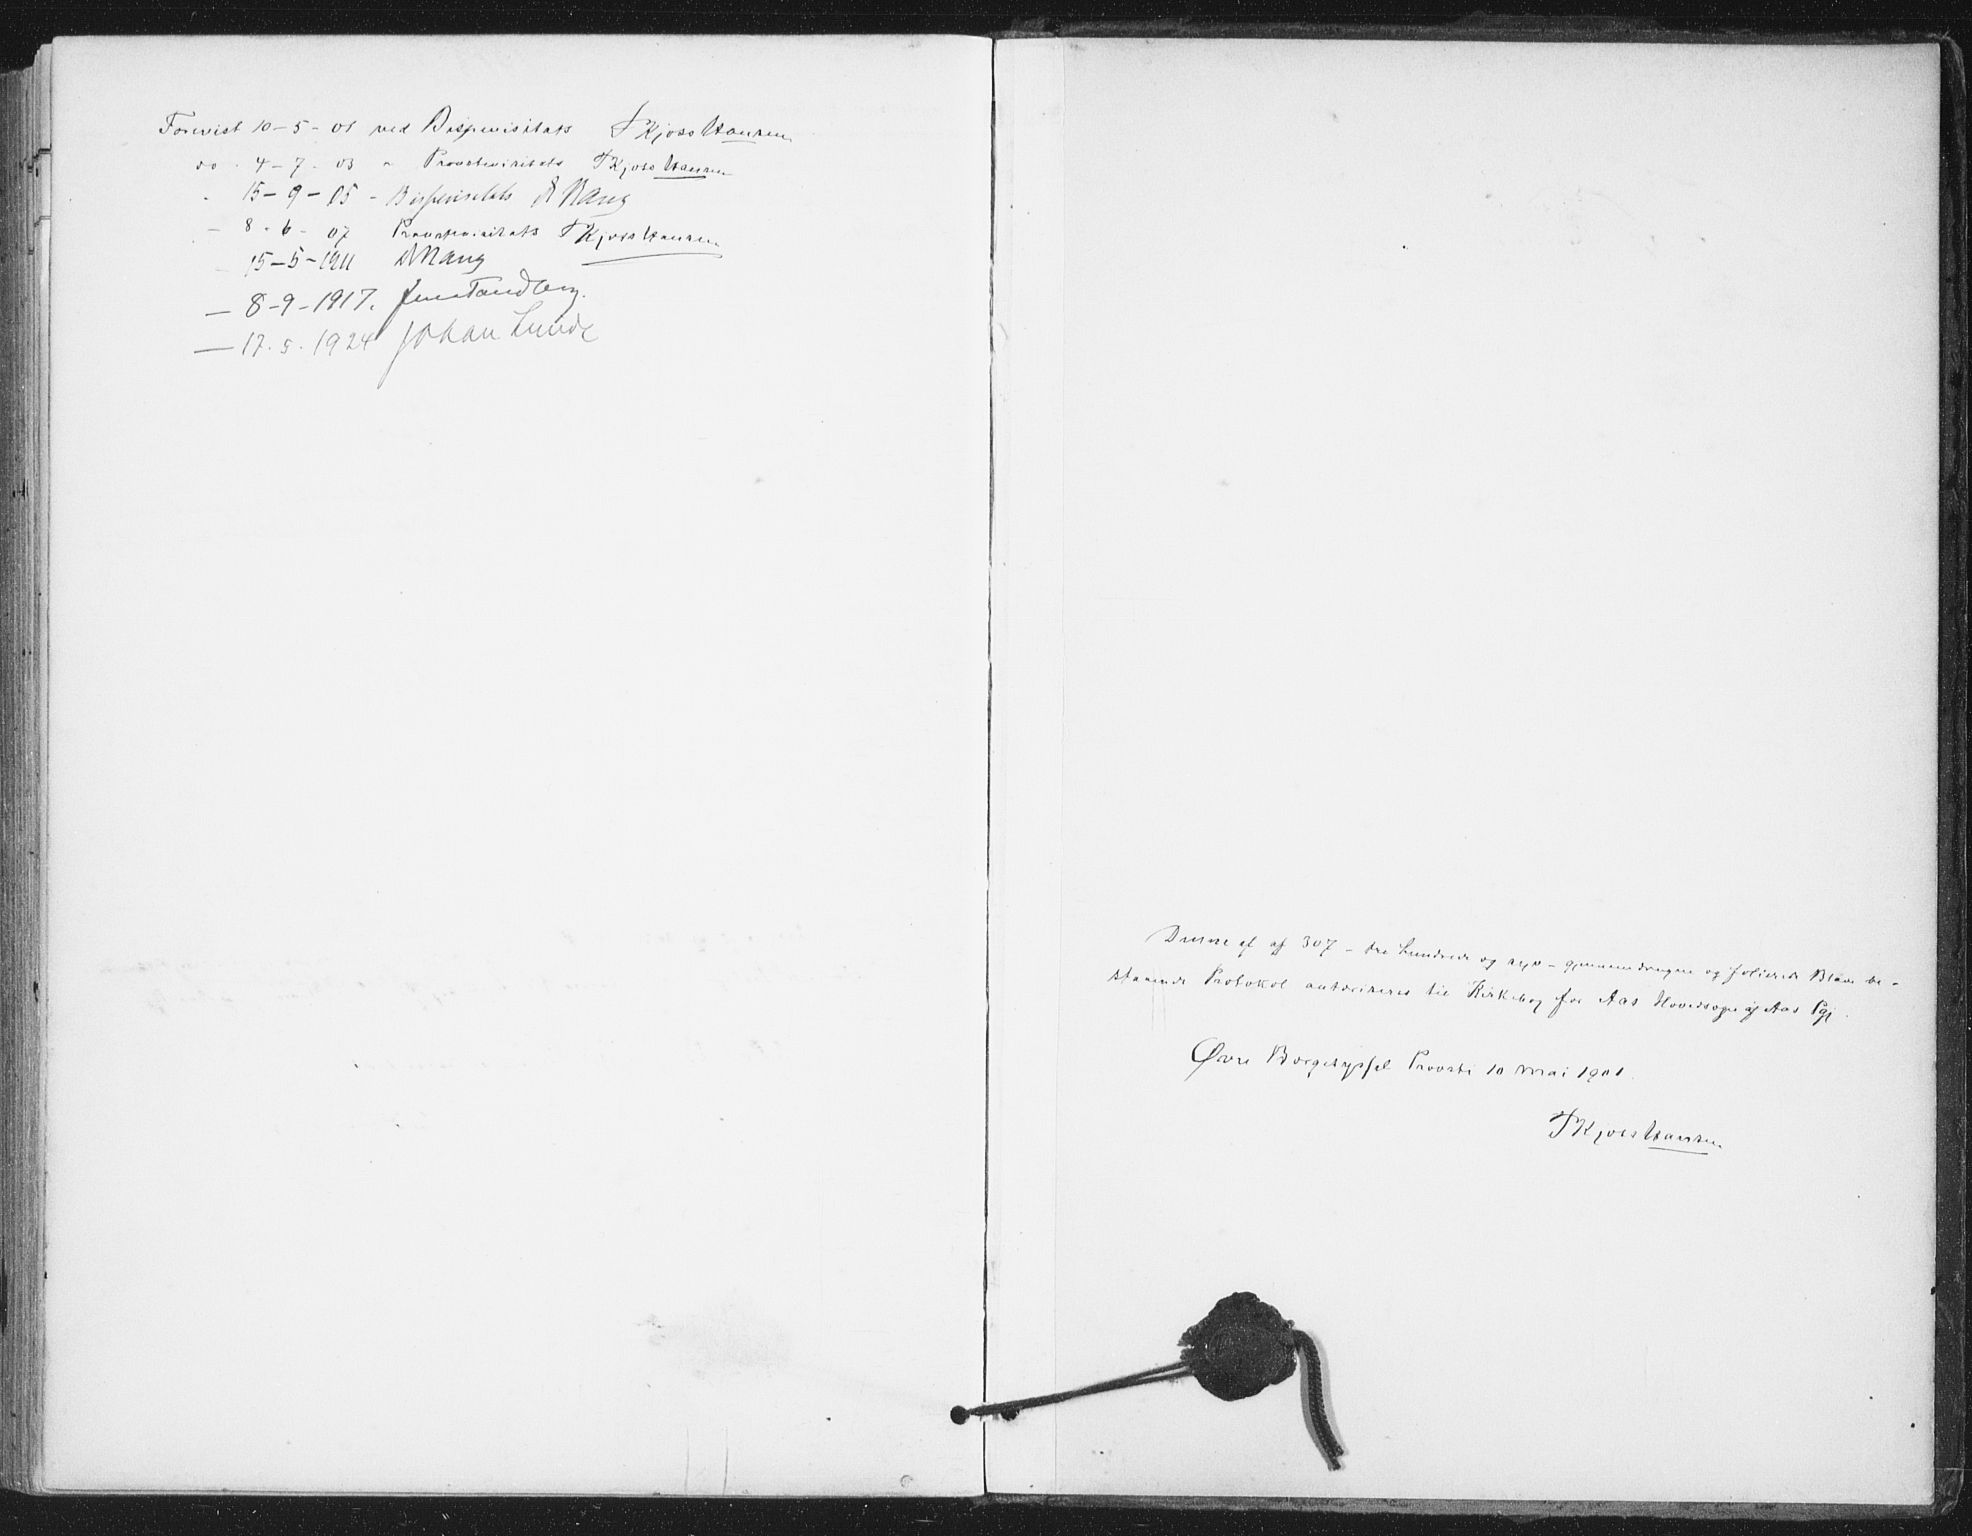 Forevist 10-5-01 ved Bispevisitats T Kjoss Hansen
do. 4-7-03 " Provstevisitats T Kjoss Hansen
" 15-9-05 - Bispevisitats A Bang
— 8-6-07 Provstevisitats T Kjoss Hansen
— 15-5-1911 A Bang
— 8-9-1917. Jens Tandberg.
— 17.5.1924 Johan Lunde
Denne af 307 - tre hundrede og syv - gjennemdragne og folierede Blade be-
staaende Protokol autoriseres til Kirkebog for Aas Hovedsogn af Aas Pgj.
Øvre Borgesyssel Provsti 10 Mai 1901.
T Kjoss Hansen